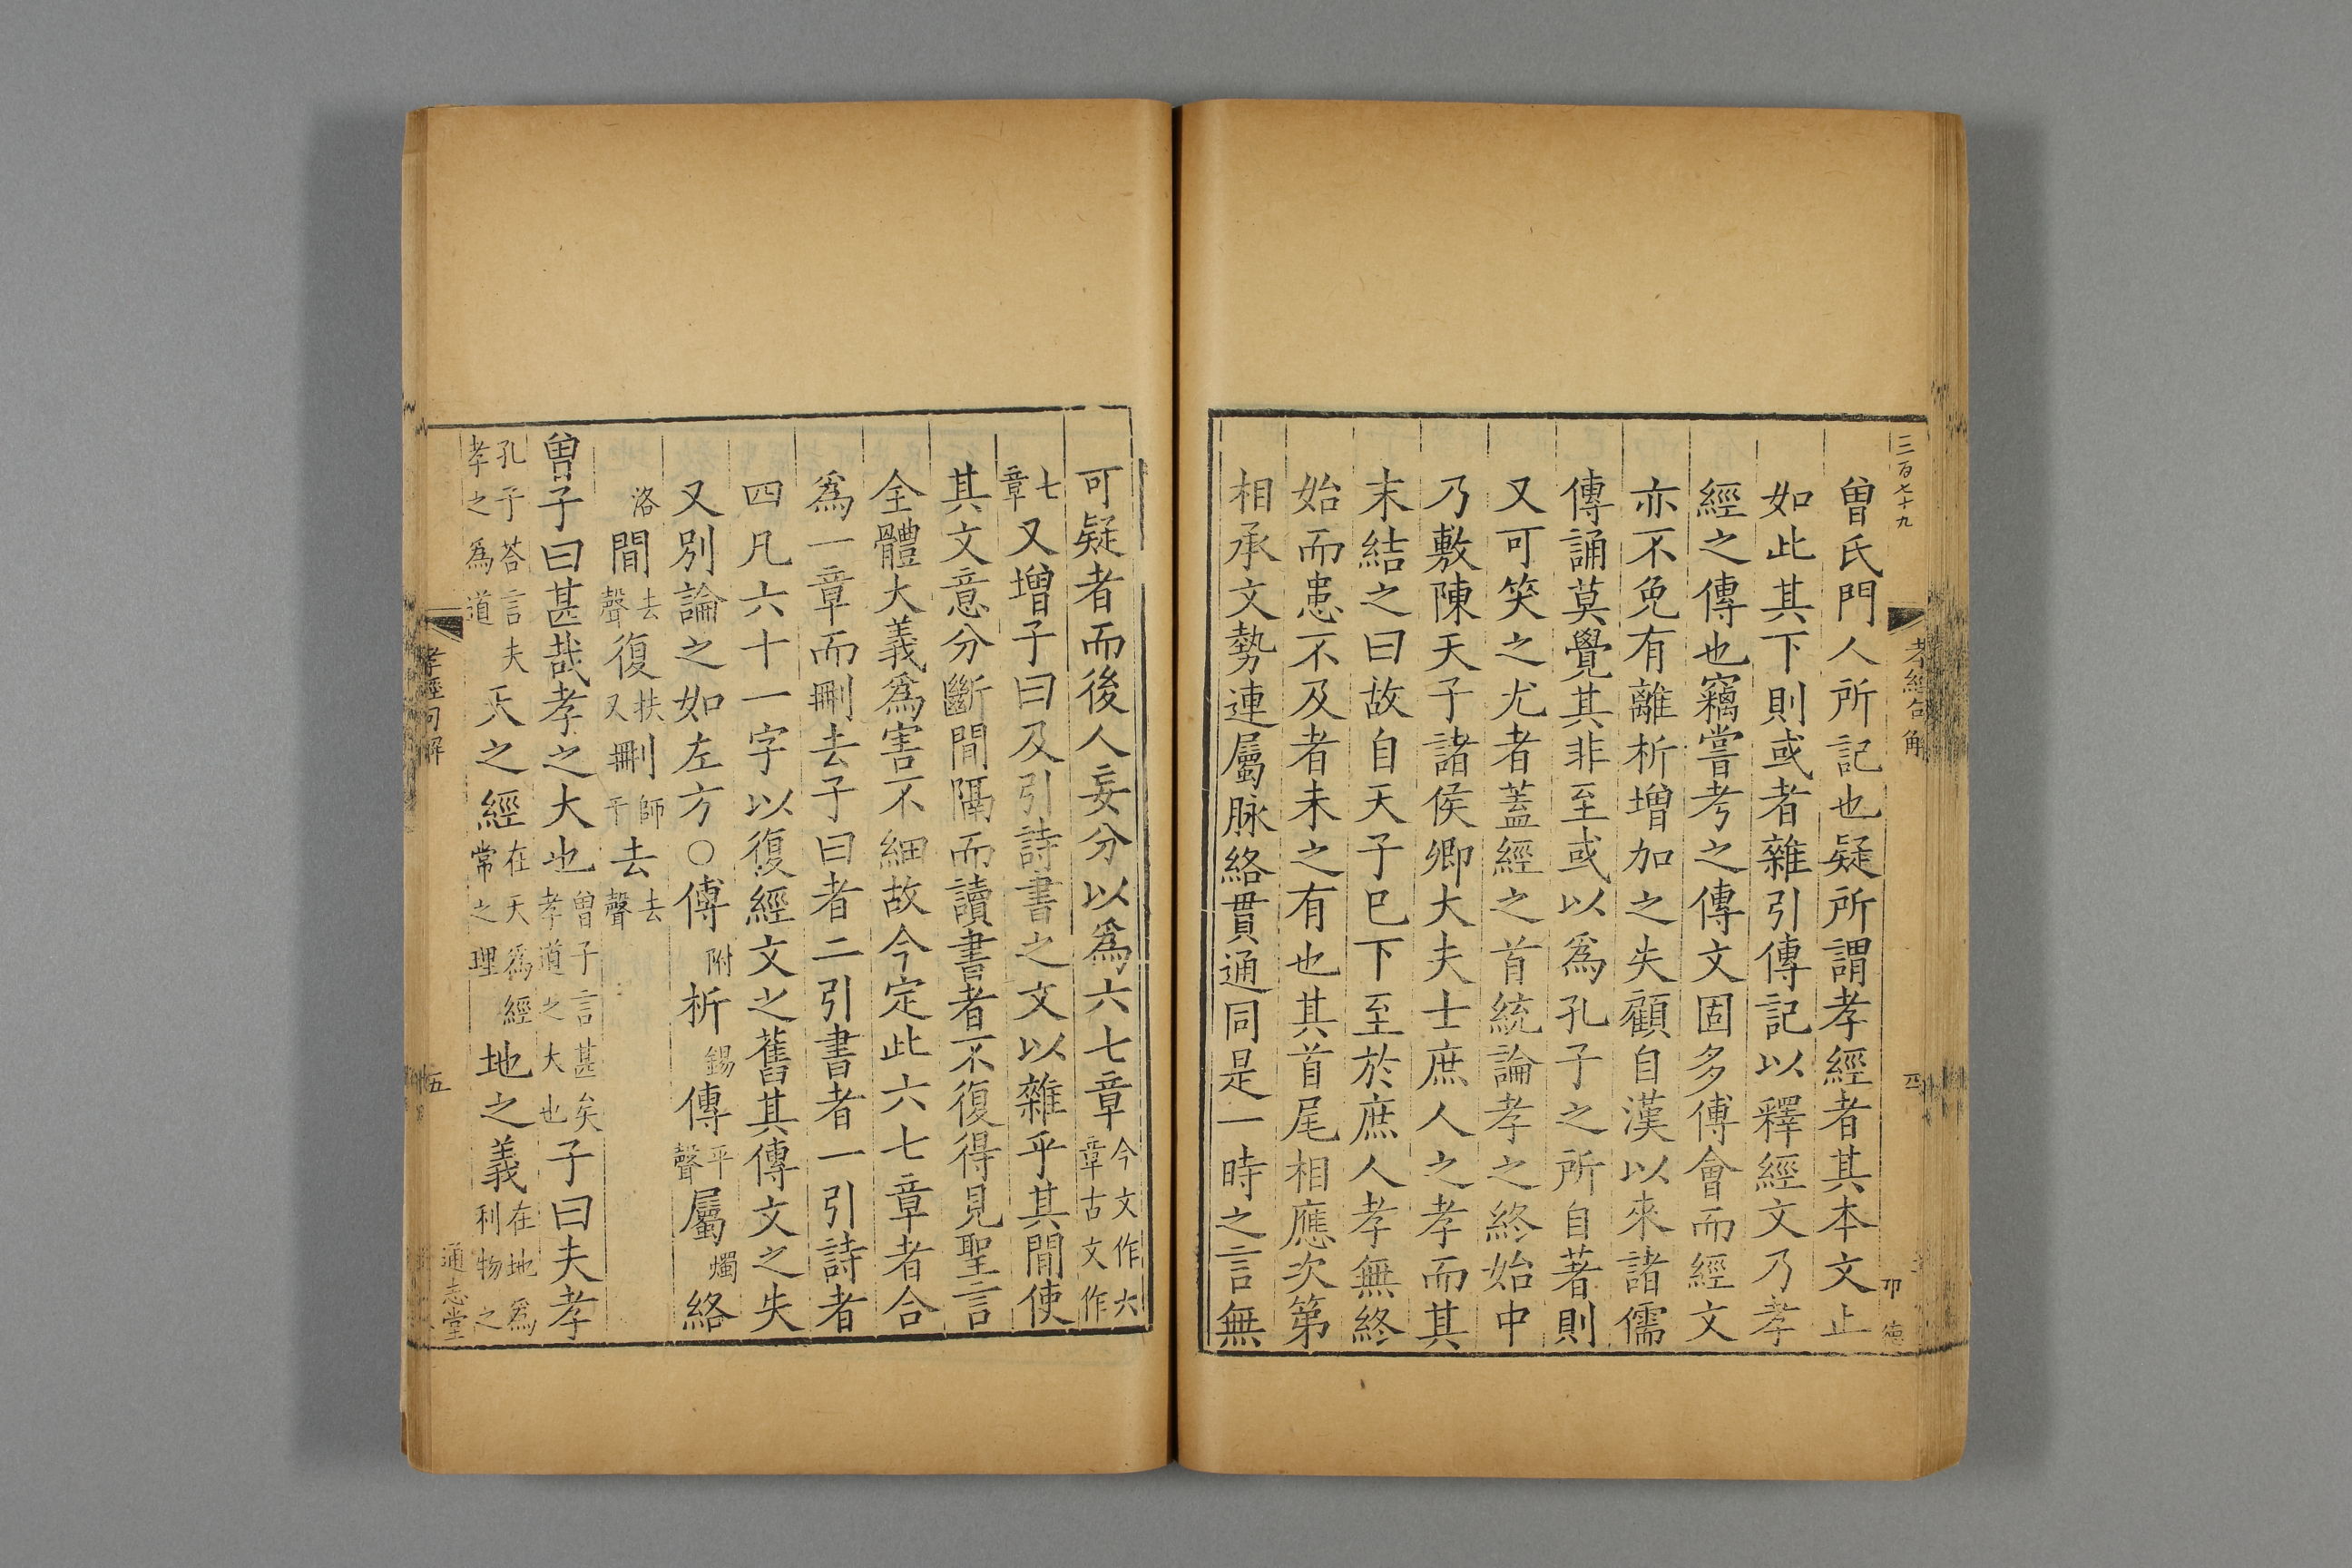 三百七十九
孝經句解
四
卬德
曾氏門人所記也疑所謂孝經者其本文止
如此其下則或者雜引傳記以釋經文乃孝
經之傳也竊嘗考之傳文固多傅會而經文
亦不免有離析增加之失顧自漢以來諸儒
傳誦莫覺其非至或以爲孔子之所自著則
又可笑之尤者蓋經之首統論孝之終始中
乃敷陳天子諸侯卿大夫士庶人之孝而其
末結之曰故自天子已下至於庶人孝無終
始而患不及者未之有也其首尾相應次第
相承文勢連屬脉絡貫通同是一時之言無
可疑者而後人妄分以爲六七章今文作六章古文作
七章又增子曰及引詩書之文以雜乎其間使
其文意分斷間隔而讀書者不復得見聖言
全體大義爲害不細故今定此六七章者合
爲一章而刪去子曰者二引書者一引詩者
四凡六十一字以復經文之舊其傳文之失
又別論之如左方○傅附析錫傳平聲屬燭絡
洛間去聲復扶又刪師干去去聲
曾子曰甚哉孝之大也曾子言甚矣孝道之大也子曰夫孝
孔子荅言夫孝之爲道天之經在天爲經常之理地之義在地爲利物之
孝經句解
五
通志堂